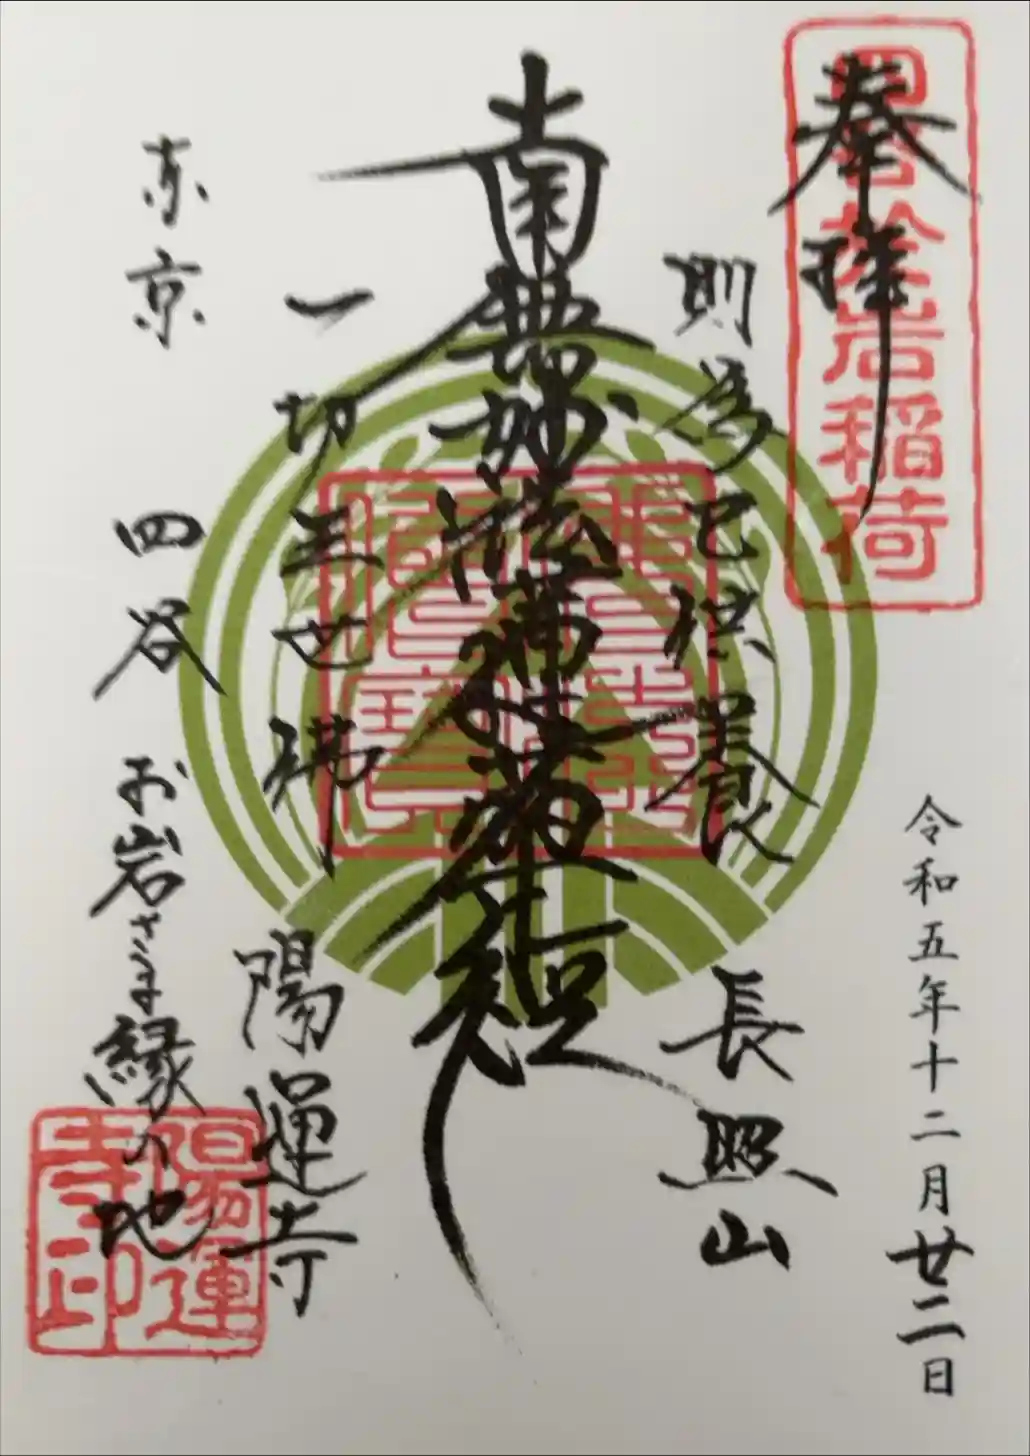 奉拝
四谷於岩稲荷
令和五年十二月廿二日
則為已供養
長照山
南無妙法蓮華経
一切三世佛
陽運寺
東京
四谷
お岩さま縁の地
陽運寺印